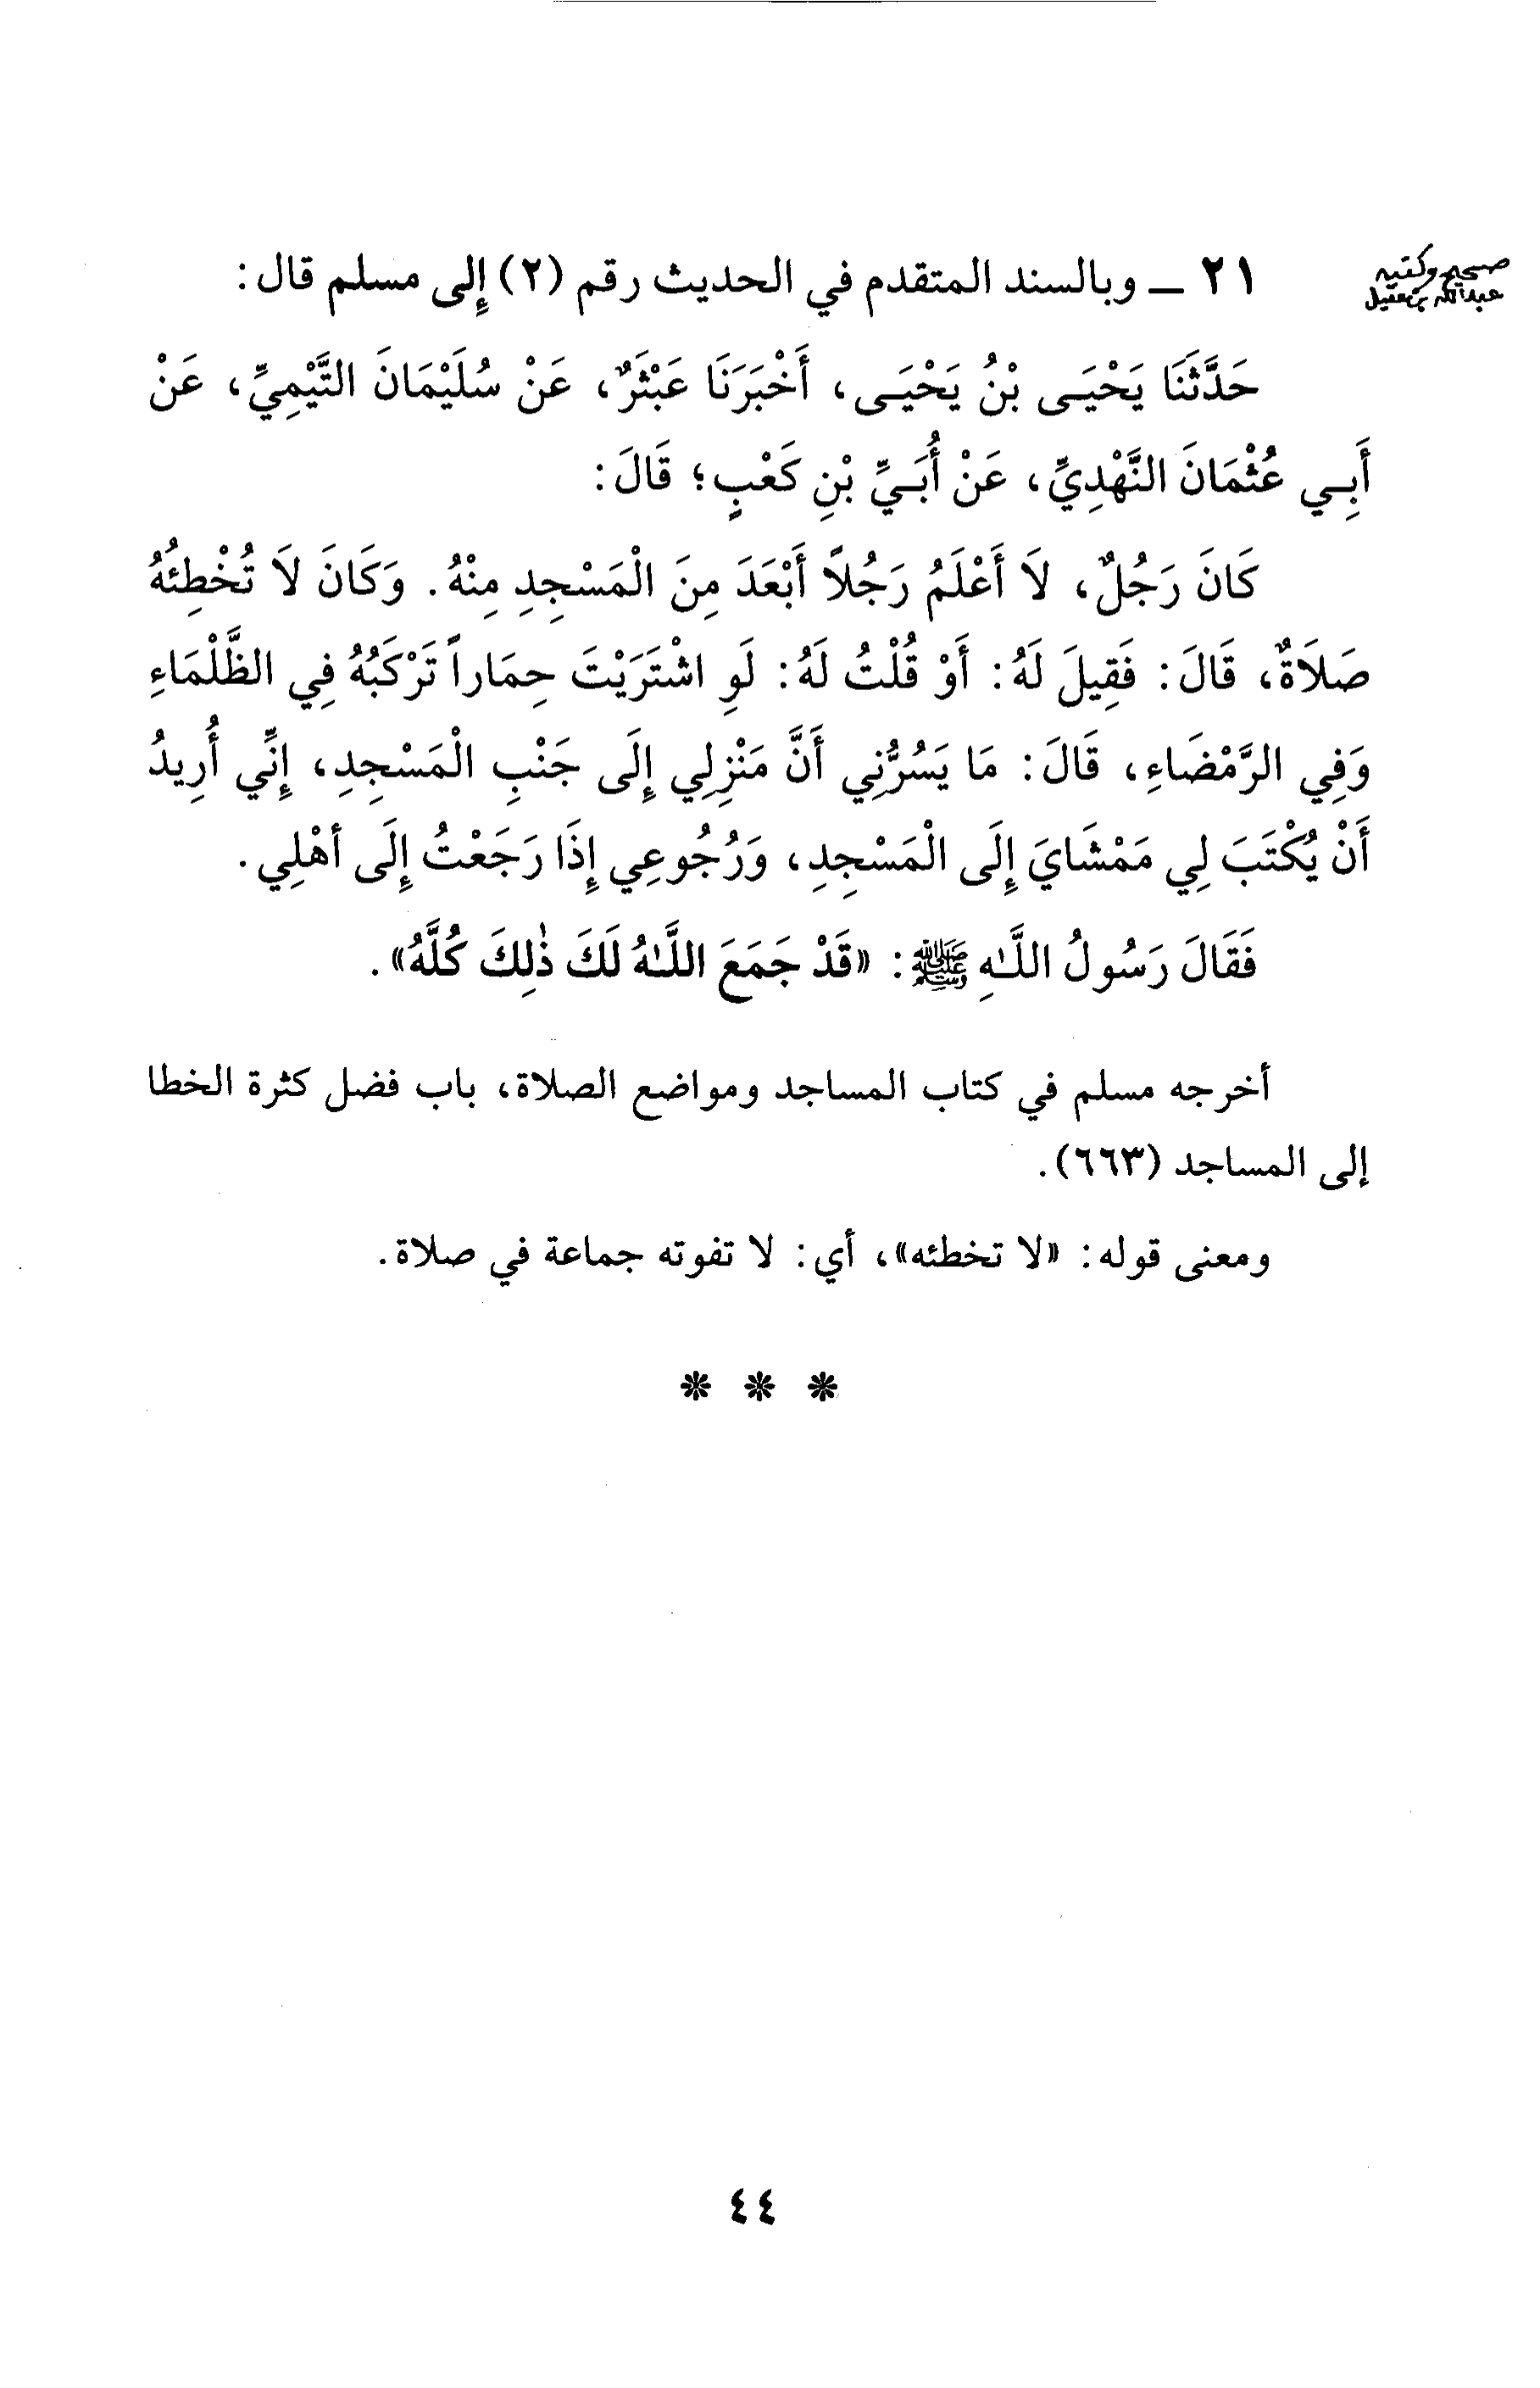 صحيح وكتبه
عبدالله بن عقيل
٢١ ـ وبالسند المتقدم في الحديث رقم (٢) إِلى مسلم قال:
حَدَّثَنَا يَحْيَـى بْنُ يَحْيَـى، أَخْبَرَنَا عَبْثَرٌ، عَنْ سُلَيْمَانَ التَّيْمِيِّ، عَنْ
أَبِـي عُثْمَانَ النَّهْدِيِّ، عَنْ أُبَـيِّ بْنِ كَعْبٍ؛ قَالَ:
كَانَ رَجُلٌ، لاَ أَعْلَمُ رَجُلاً أَبْعَدَ مِنَ الْمَسْجِدِ مِنْهُ. وَكَانَ لاَ تُخْطِئُهُ
صَلاَةٌ، قَالَ: فَقِيلَ لَهُ: أَوْ قُلْتُ لَهُ: لَوِ اشْتَرَيْتَ حِمَاراً تَرْكَبُهُ فِي الظَّلْمَاءِ
وَفِي الرَّمْضَاءِ، قَالَ: مَا يَسُرُّنِي أَنَّ مَنْزِلِي إِلَى جَنْبِ الْمَسْجِدِ، إِنِّي أُرِيدُ
أَنْ يُكْتَبَ لِي مَمْشَايَ إِلَى الْمَسْجِدِ، وَرُجُوعِي إِذَا رَجَعْتُ إِلَى أهْلِي.
فَقَالَ رَسُولُ اللَّـٰهِ ﷺ: «قَدْ جَمَعَ اللَّـٰهُ لَكَ ذٰلِكَ كُلَّهُ».
أخرجه مسلم في كتاب المساجد ومواضع الصلاة، باب فضل كثرة الخطا
إلى المساجد (٦٦٣).
ومعنى قوله: «لا تخطئه»، أي: لا تفوته جماعة في صلاة.
* * *
٤٤